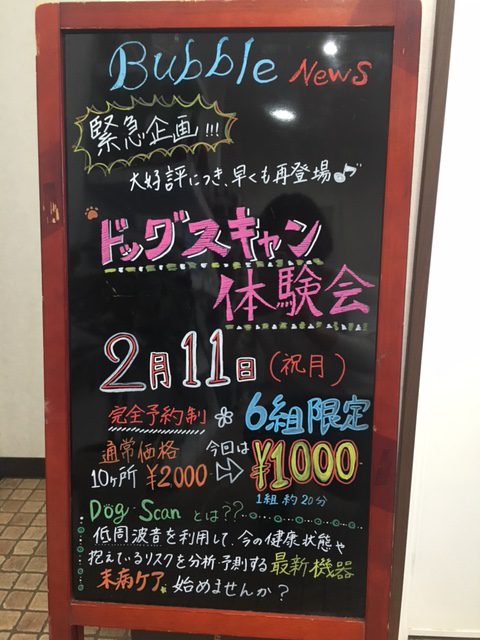 Bubble News
緊急企画!!!
大好評につき、早くも再登場♪
ドッグスキャン
体験会
2月11日(祝月)
完全予約制 ❀ 6組限定
通常価格 今回は
10ヶ所 ¥2000 ⇨ ¥1000
1組 約20分
Dog Scan とは??
低周波音を利用して、今の健康状態や
抱えているリスクを分析・予測する最新機器
未病ケア 始めませんか?